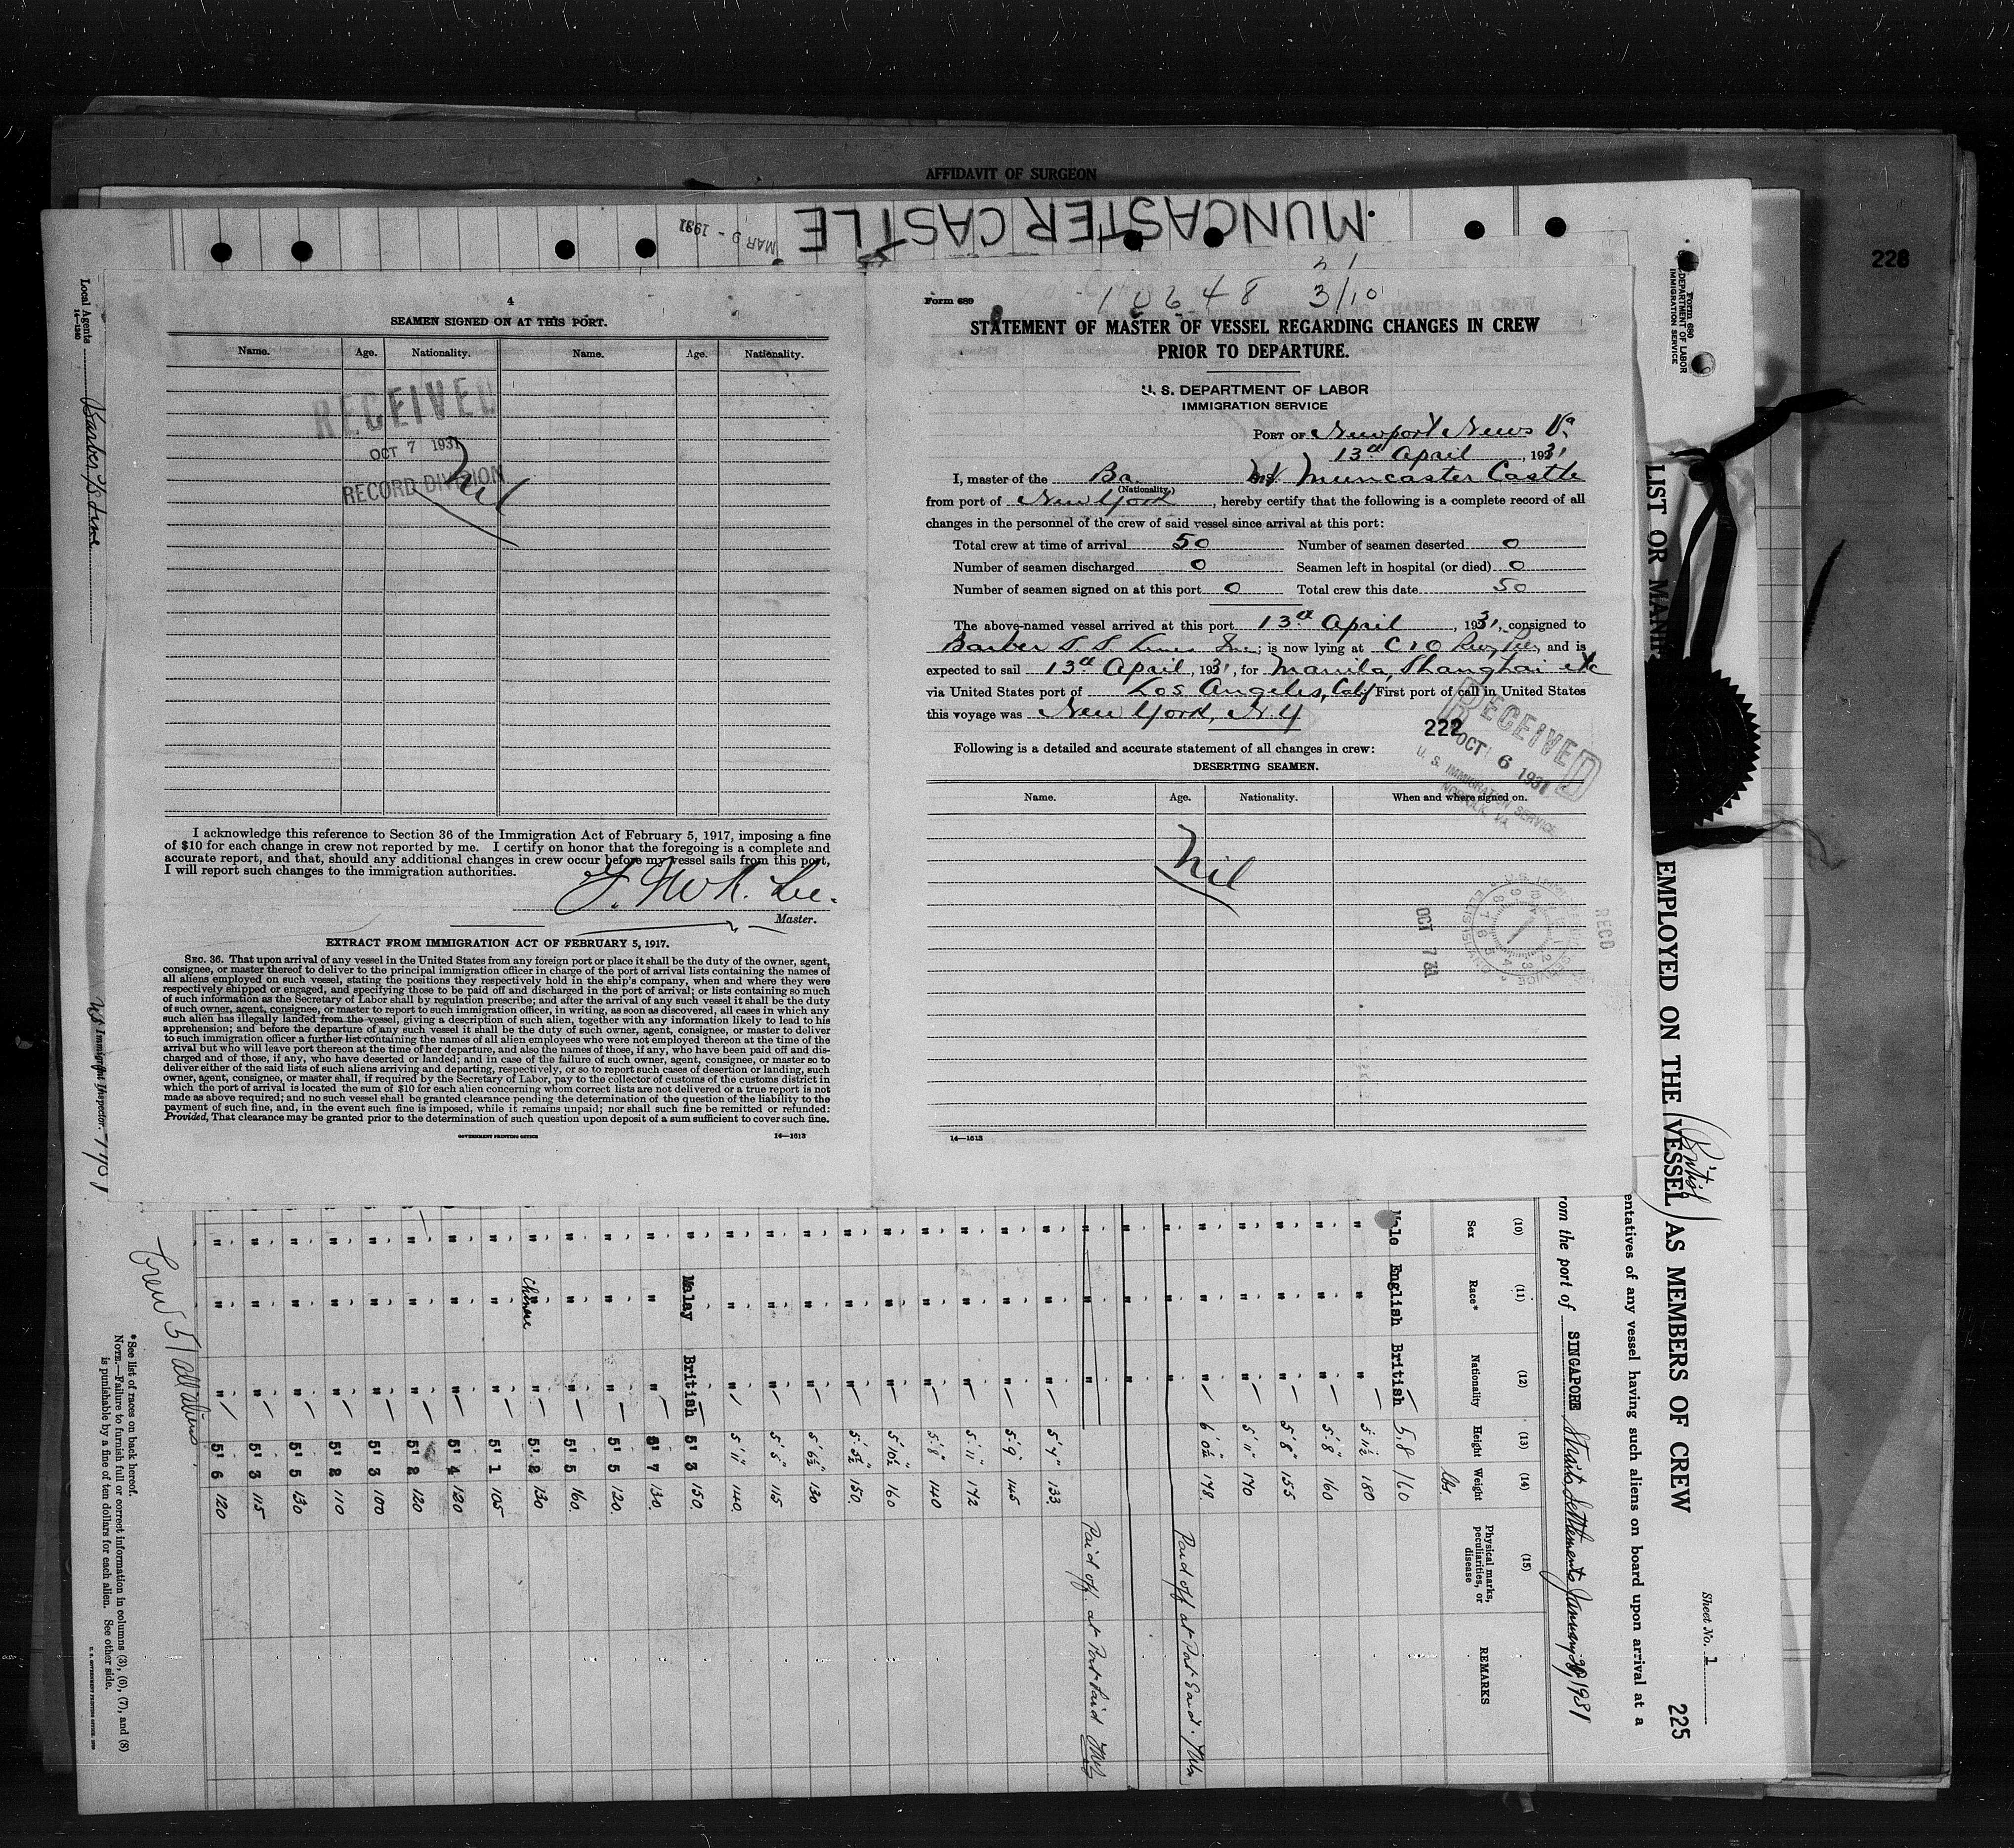 AFFIDAVIT OF SURGEON
MUNCASTER CASTLE
MAR 9 - 1931
228
4
SEAMEN SIGNED ON AT THIS PORT.
Name. Age. Nationality. Name. Age. Nationality.
RECEIVED
OCT 7 1931
RECORD DIVISION
Nil
I acknowledge this reference to Section 36 of the Immigration Act of February 5, 1917, imposing a fine
of $10 for each change in crew not reported by me. I certify on honor that the foregoing is a complete and
accurate report, and that, should any additional changes in crew occur before my vessel sails from this port,
I will report such changes to the immigration authorities.
Master.
EXTRACT FROM IMMIGRATION ACT OF FEBRUARY 5, 1917.
SEC. 36. That upon arrival of any vessel in the United States from any foreign port or place it shall be the duty of the owner, agent,
consignee, or master thereof to deliver to the principal immigration officer in charge of the port of arrival lists containing the names of
all aliens employed on such vessel, stating the positions they respectively hold in the ship's company, when and where they were
respectively shipped or engaged, and specifying those to be paid off and discharged in the port of arrival; or lists containing so much
of such information as the Secretary of Labor shall by regulation prescribe; and after the arrival of any such vessel it shall be the duty
of such owner, agent, consignee, or master to report to such immigration officer, in writing, as soon as discovered, all cases in which any
such alien has illegally landed from the vessel, giving a description of such alien, together with any information likely to lead to his
apprehension; and before the departure of any such vessel it shall be the duty of such owner, agent, consignee, or master to deliver
to such immigration officer a further list containing the names of all alien employees who were not employed thereon at the time of the
arrival but who will leave port thereon at the time of her departure, and also the names of those, if any, who have been paid off and dis-
charged and of those, if any, who have deserted or landed; and in case of the failure of such owner, agent, consignee, or master so to
deliver either of the said lists of such aliens arriving and departing, respectively, or so to report such cases of desertion or landing, such
owner, agent, consignee, or master shall, if required by the Secretary of Labor, pay to the collector of customs of the customs district in
which the port of arrival is located the sum of $10 for each alien concerning whom correct lists are not delivered or a true report is not
made as above required; and no such vessel shall be granted clearance pending the determination of the question of the liability to the
payment of such fine, and, in the event such fine is imposed, while it remains unpaid; nor shall such fine be remitted or refunded:
Provided, That clearance may be granted prior to the determination of such question upon deposit of a sum sufficient to cover such fine.
GOVERNMENT PRINTING OFFICE 14—1613
Form 689
10648 3/10
STATEMENT OF MASTER OF VESSEL REGARDING CHANGES IN CREW
PRIOR TO DEPARTURE.
U. S. DEPARTMENT OF LABOR
IMMIGRATION SERVICE
PORT OF Newport News Va
13th April, 1931
I, master of the Br. MV. Muncaster Castle
(Nationality.)
from port of New York, hereby certify that the following is a complete record of all
changes in the personnel of the crew of said vessel since arrival at this port:
Total crew at time of arrival 50 Number of seamen deserted 0
Number of seamen discharged 0 Seamen left in hospital (or died) 0
Number of seamen signed on at this port 0 Total crew this date 50
The above-named vessel arrived at this port 13th April, 1931, consigned to
Barber S S Lines Inc; is now lying at C & O Ry Pier, and is
expected to sail 13th April, 1931, for Manila, Shanghai etc
via United States port of Los Angeles, Calif First port of call in United States
this voyage was New York, N.Y
222
RECEIVED
OCT 6 1931
U. S. IMMIGRATION SERVICE
NORFOLK, VA
Following is a detailed and accurate statement of all changes in crew:
DESERTING SEAMEN.
Name. Age. Nationality. When and where signed on.
Nil
OCT 7 31
RECD
14—1613
Form 680
U. S. DEPARTMENT OF LABOR
IMMIGRATION SERVICE
LIST OR MANIF
EMPLOYED ON THE VESSEL AS MEMBERS OF CREW
(British)
Sheet No. 1
225
entatives of any vessel having such aliens on board upon arrival at a
rom the port of SINGAPORE Straits Settlements January 29, 1931
(10) (11) (12) (13) (14) (15)
Sex Race* Nationality Height Weight Physical marks, peculiarities, or disease REMARKS
lbs.
Male English British 5.8 160
" " " 5' 11½ 180
" " " 5' 8" 160
" " " 5' 8" 155
" " " 5' 11" 170
" " " 6' 0½ 178
" " " Paid off at Port Said.
" " "
" " " Paid off at Port Said
" " " 5' 4" 133
" " " 5' 9" 145
" " " 5' 11" 172
" " " 5' 8" 140
" " " 5' 10½ 160
" " " 5' 5½ 150
" " " 5' 6½ 130
" " " 5' 5" 115
" " " 5' 11" 140
" Malay British 5' 3 150
" " " 5' 7 130
" " " 5' 5 120
" " " 5' 5 160
" Chinese " 5' 2 130
" " " 5' 1 105
" " " 5' 4 120
" " " 5' 2 120
" " " 5' 3 100
" " " 5' 2 110
" " " 5' 5 130
" " " 5' 3 115
" " " 5' 6 120
Crew 51 all aliens
*See list of races on back hereof.
NOTE.—Failure to furnish full or correct information in columns (3), (6), (7), and (8)
is punishable by a fine of ten dollars for each alien. See other side.
Local Agents Barber SS Line
14—1240
Immigrant Inspector.